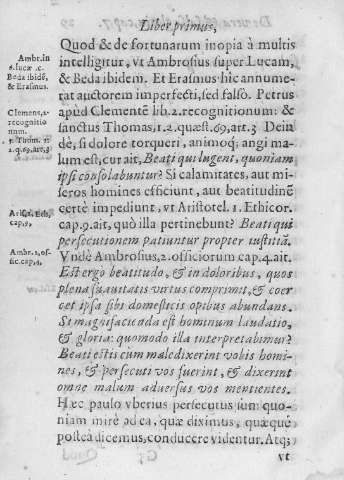 Liber primus,
Quod & de fortunarum inopia à multis
intelligitur, vt Ambrosius super Lucam,
& Beda ibidem. Et Erasmus hic annume-
rat auctorem imperfecti, sed falso. Petrus
apùd Clementē lib. 2. recognitionum: &
sanctus Thomas, 1. 2. quæst. 69, art. 3 Dein
dè, si dolore torqueri, animoq; angi ma-
lum est, cur ait, Beati qui lugent, quoniam
ipsi consolabuntur? Si calamitates, aut mi-
seros homines efficiunt, aut beatitudinē
certè impediunt, vt Aristotel. 1. Ethicor.
cap. 9. ait, quò illa pertinebunt? Beati qui
persecutionem patiuntur propter iustitiã.
Vndè Ambrosius, 2. officiorum cap. 4. ait.
Est ergo beatitudo, & in doloribus, quos
plena suauitatis virtus comprimit, & coer
cet ipsa sibi domesticis opibus abundans.
Si magnifaciēda est hominum laudatio,
& gloria: quomodo illa interpretabimur?
Beati estis cum maledixerint vobis homi-
nes, & persecuti vos fuerint, & dixerint
omne malum aduersus vos mentientes.
Hæc paulo vberius persecutus sum quo-
niam mirè ad ea, quæ diximus, quæque
posteà dicemus, conducere videntur. Atq;
vt
Ambr. in
6. lucæ .c.
Beda ibidē,
& Erasmus.
Clemens, 2.
recognitio
num.
S. Thom. 1.
2. q. 69, art, 3
Arist. 1, Eth,
cap, 9,
Ambr. 2, of-
fic. cap, 4.